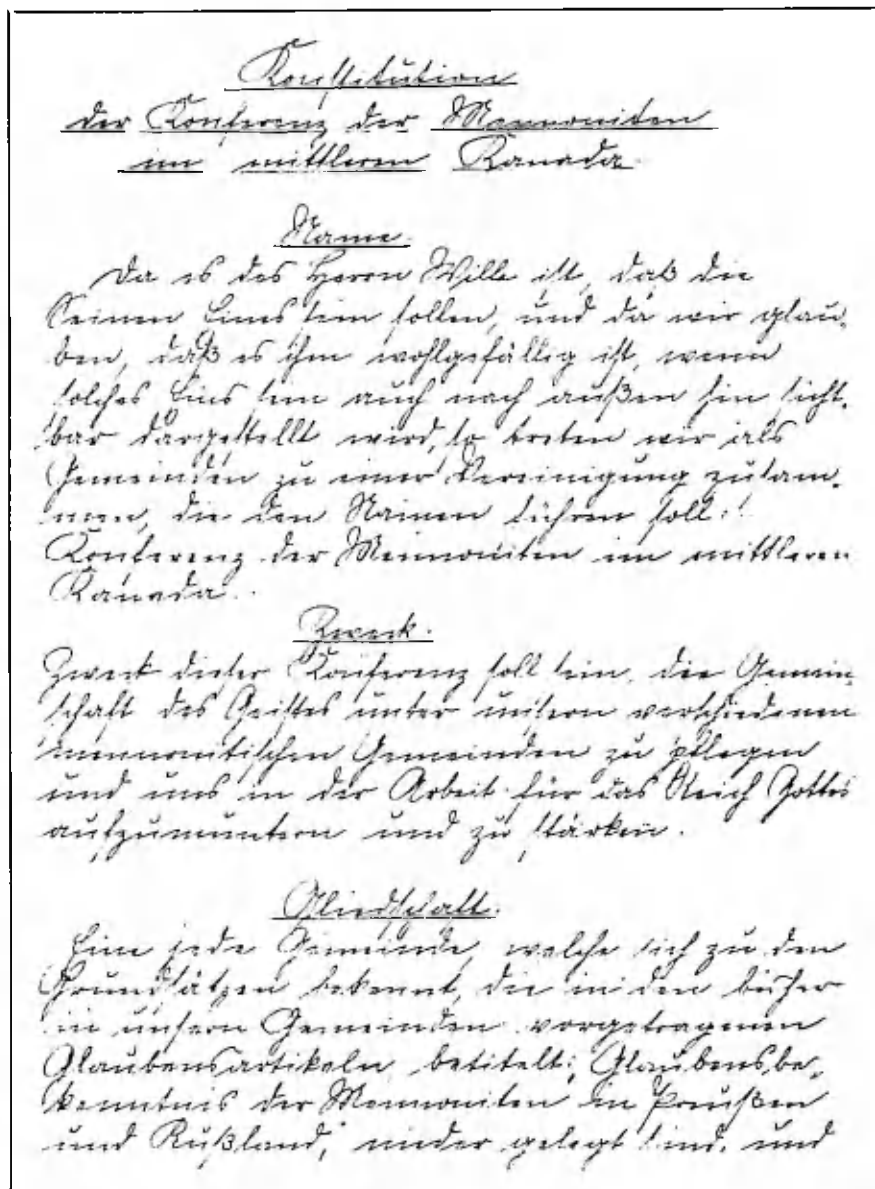 Konstitution
der Konferenz der Mennoniten
im mittleren Kanada.
Name.
Da es des Herrn Wille ist, daß die
Seinen Eines sein sollen, und da wir glau-
ben, daß es ihm wohlgefällig ist, wenn
solches Eins sein auch nach außen hin sicht-
bar dargestellt wird, so treten wir als
Gemeinden zu einer Vereinigung zusam-
men, die den Namen führen soll:
Konferenz der Mennoniten im mittleren
Kanada.
Zweck.
Zweck dieser Konferenz soll sein, die Gemein-
schaft des Geistes unter unsern verschiedenen
mennonitischen Gemeinden zu pflegen
und uns in der Arbeit für das Reich Gottes
aufzumuntern und zu stärken.
Gliedschaft.
Eine jede Gemeinde, welche sich zu den
Grundsätzen bekennt, die in den bisher
in unsern Gemeinden vorgetragenen
Glaubensartikeln, betitelt: „Glaubensbe-
kenntnis der Mennoniten in Preußen
und Rußland," nieder gelegt sind, und